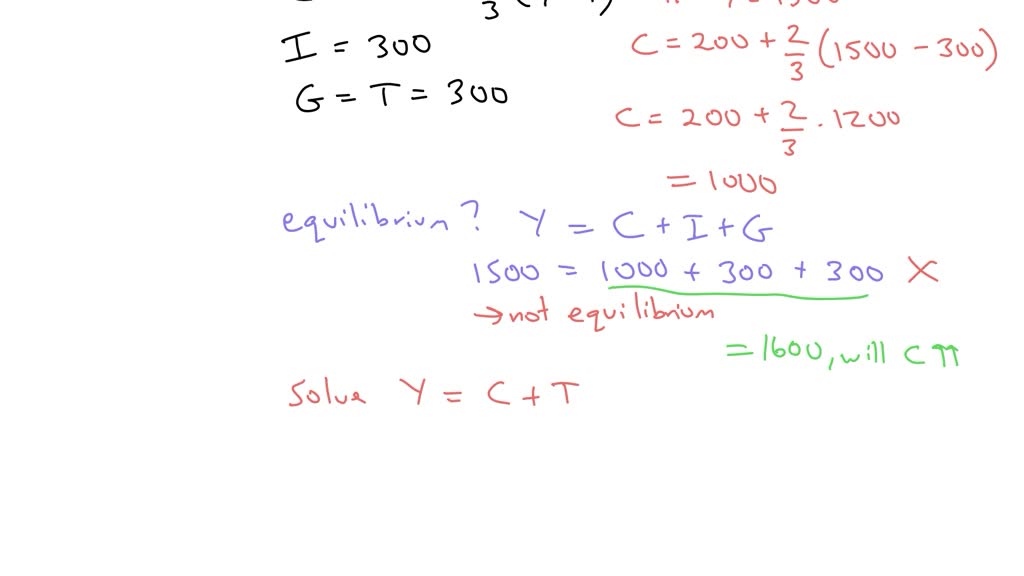 3
I = 300
G = T = 300
C = 200 + 2/3 (1500 - 300)
C = 200 + 2/3 . 1200
= 1000
equilibrium? Y = C + I + G
1500 = 1000 + 300 + 300 X
→ not equilibrium
= 1600, will C ⇈
Solve Y = C + T